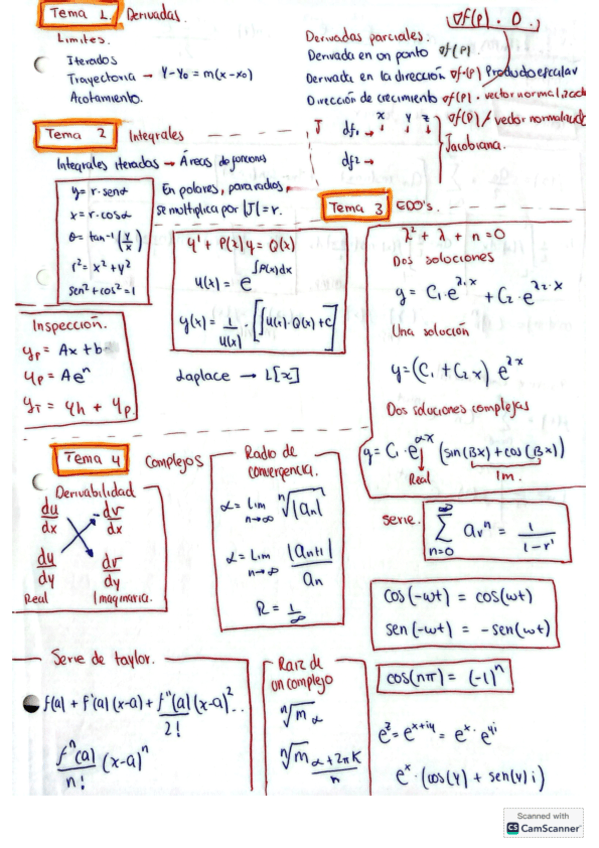 Tema 1. Derivadas.
Limites.
Iterados
Trayectoria → Y-Y₀ = m(x-x₀)
Acotamiento.
∇f(p) · 0.
Derivadas parciales.
Derivada en un punto ∇f(P).
Derivada en la dirección ∇f·(P) Producto escalar
Dirección de crecimiento ∇f(P) · vector normalizado
∇f(P) / vector normalizado
J
x y z
df₁ →
df2 →
Jacobiana.
Tema 2 Integrales
Integrales iteradas → Áreas de funciones
y = r·senα
x = r·cosα
θ = tan⁻¹(y/x)
r² = x² + y²
sen² + cos² = 1
En polares, para radios,
se multiplica por |J| = r.
Tema 3 EDO's.
y' + P(x)y = Q(x)
u(x) = e^∫P(x)dx
y(x) = 1/u(x) · [∫u(x)·Q(x)+C]
Laplace → L[x]
Inspección.
yp = Ax + b
yp = Aeⁿ
y_T = yh + yp
λ² + λ + n = 0
Dos soluciones
y = C₁·e^λ₁·x + C₂·e^λ₂·x
Una solución
y = (C₁ + C₂x) e^λx
Dos soluciones complejas
y = C₁·e^αx (sin(Bx) + cos(Bx))
Real Im.
Tema 4 Complejos
Derivabilidad
du/dx dv/dx
du/dy dv/dy
Real Imaginaria.
Radio de
convergencia.
α = Lim n→∞ ⁿ√|an|
α = Lim n→∞ |an+1|/an
R = 1/∞
serie.
∞ Σ n=0 arⁿ = 1/1-r'
cos(-wt) = cos(wt)
sen(-wt) = -sen(wt)
cos(nπ) = (-1)ⁿ
Serie de taylor.
f(a) + f'(a)(x-a) + f''(a)/2! (x-a)²...
fⁿ(a)/n! (x-a)ⁿ
Raiz de
un complejo
ⁿ√m α
ⁿ√m α+2πK/n
e^z = e^x+iy = e^x · e^yi
e^x · (cos(y) + sen(y)i)
Scanned with
CS CamScanner